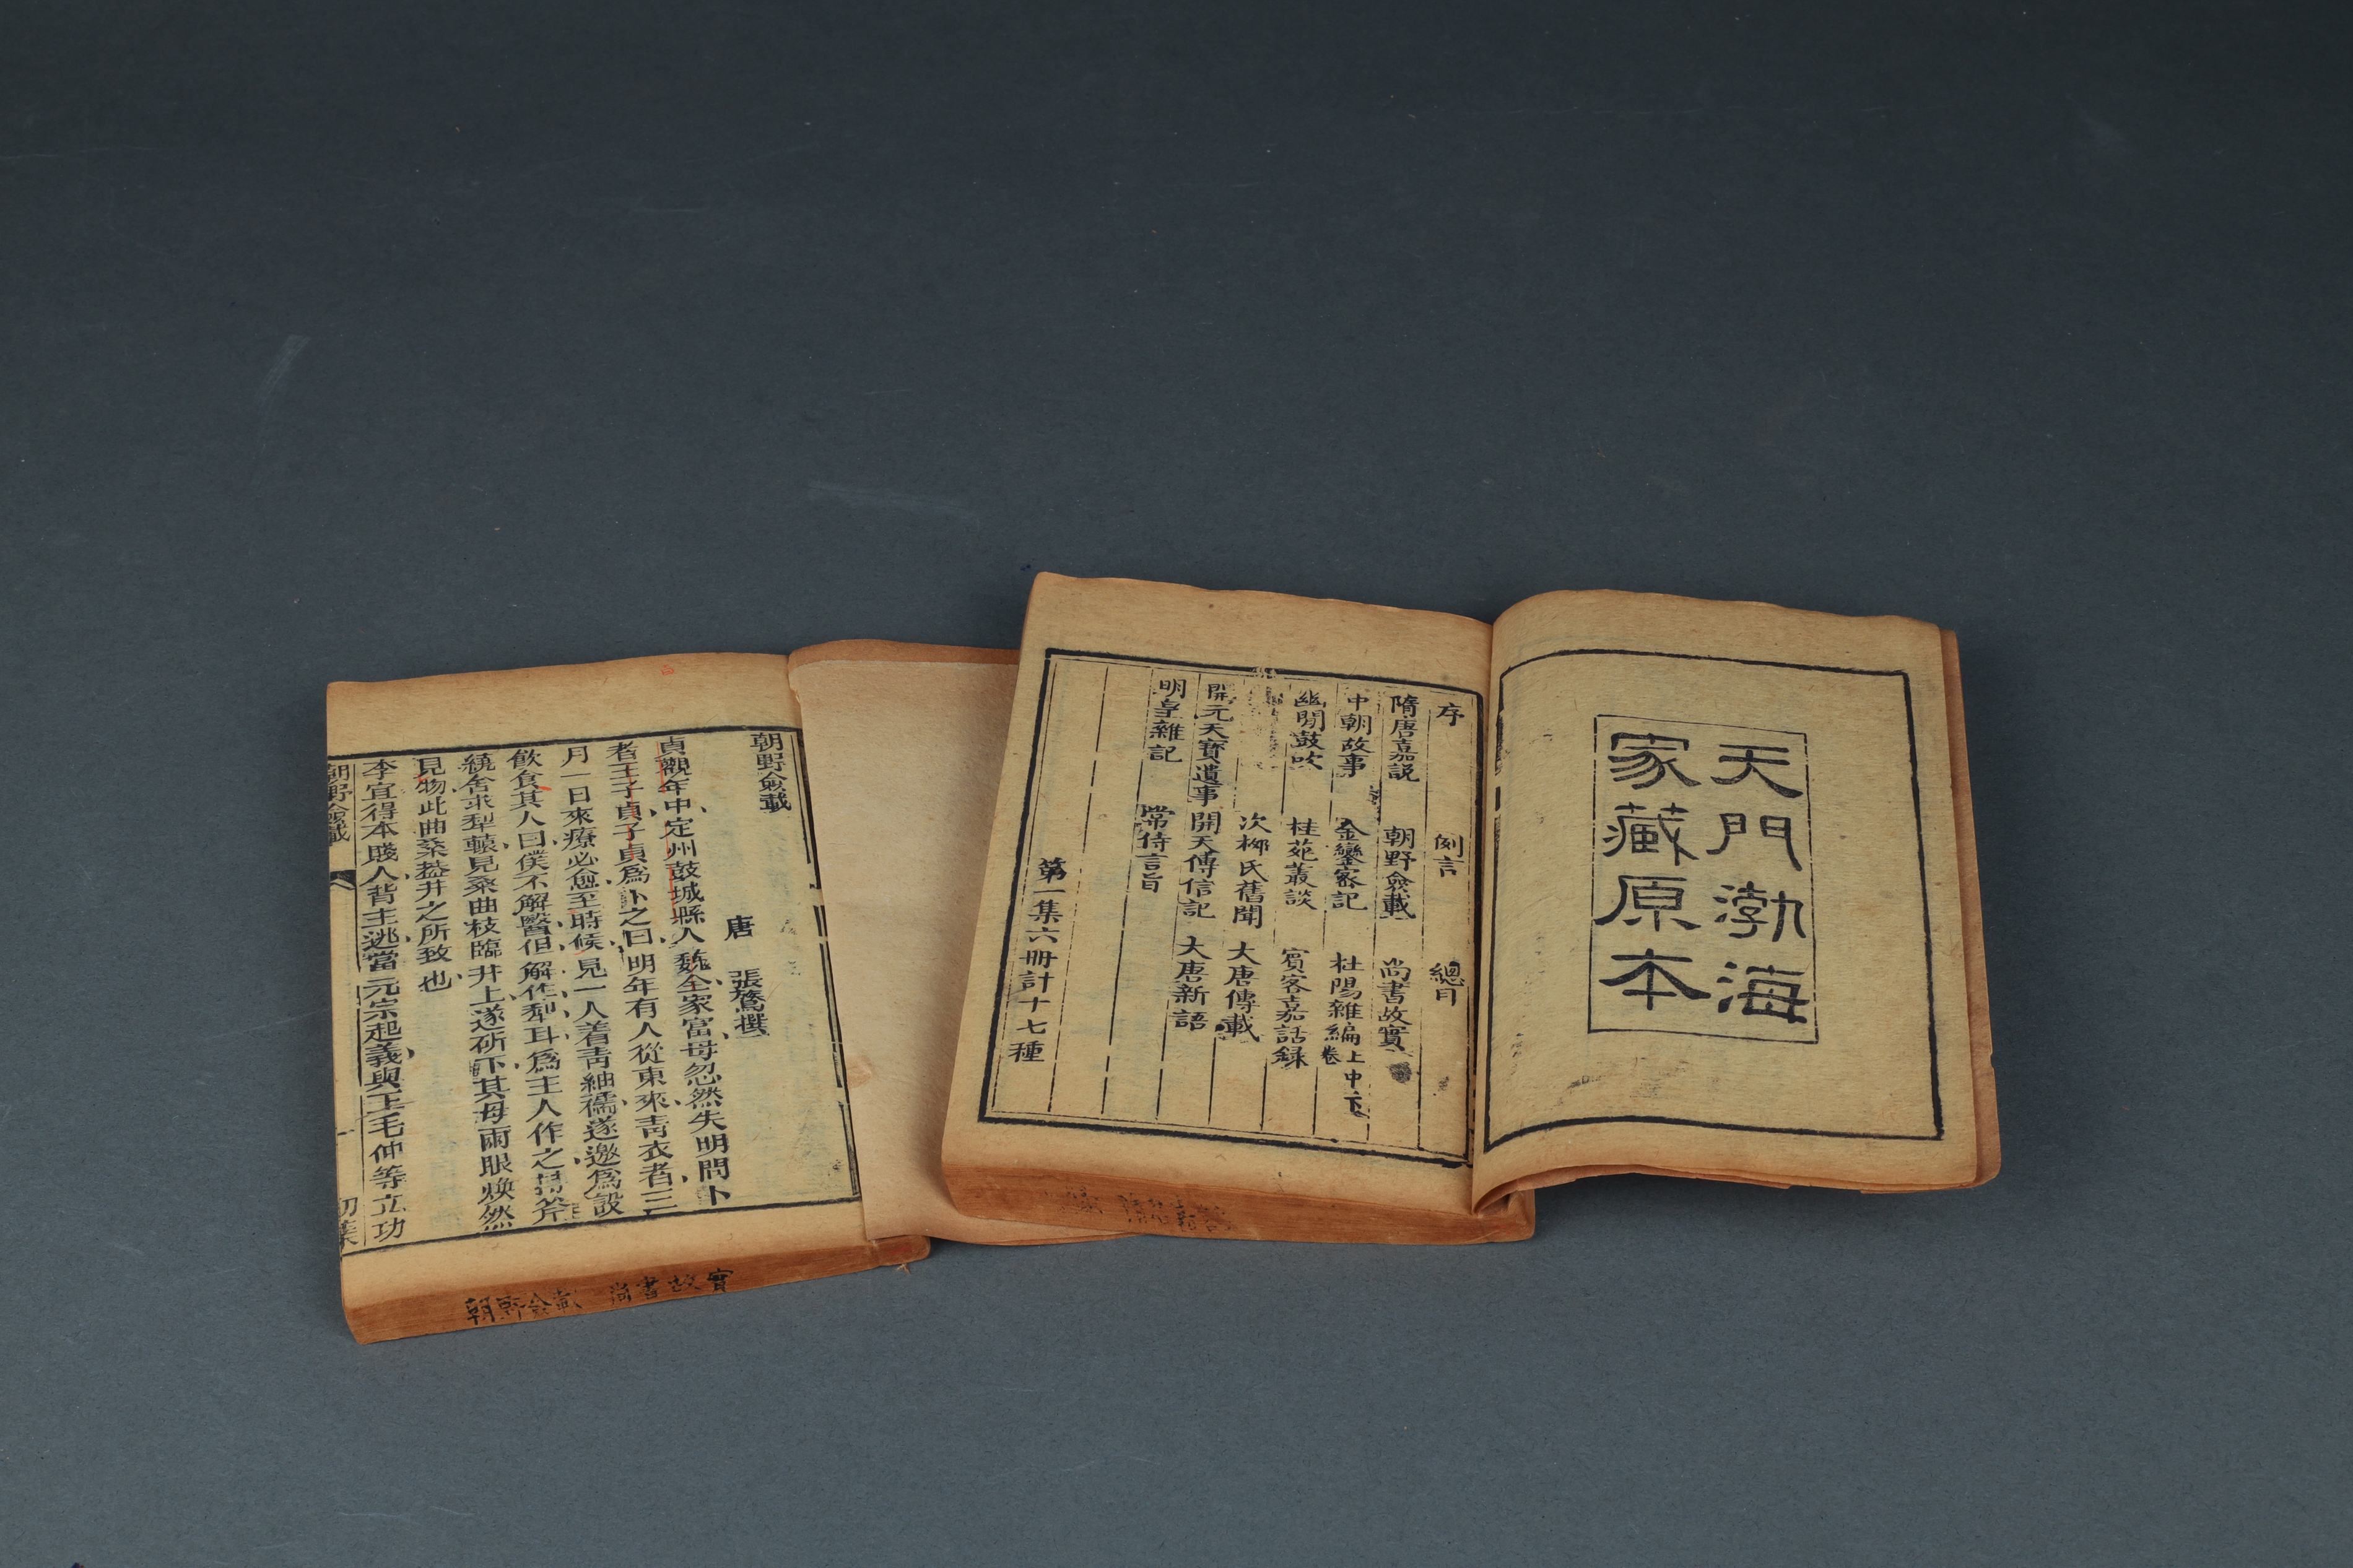 天門渤海
家藏原本
序 例言 總目
隋唐嘉話 朝野僉載 尚書故實
中朝故事 金鑾密記 杜陽雜編上中下卷
幽閒鼓吹 桂苑叢談 賓客嘉話錄
次柳氏舊聞 大唐傳載
開元天寶遺事 開天傳信記 大唐新語
明皇雜記 常侍言旨
第一集六冊計十七種
朝野僉載
唐 張鷟撰
貞觀年中定州鼓城縣人魏全家富母忽然失明問卜
者王子貞子貞爲卦之曰明年有人從東來青衣者三
月一日來療必愈至時候見一人着青紬襦遂邀爲設
飲食其人曰僕不解醫但解作犁耳爲主人作之持斧
繞舍求犁轅見桑曲枝臨井上遂斫下其母兩眼煥然
見物此曲桑葢井之所致也
李宜得本賤人背主逃當元宗起義與王毛仲等立功
朝野僉載 一 初集
朝野僉載 尚書故實